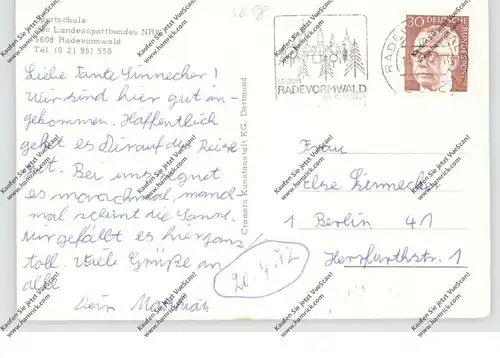 5698
Sportschule
des Landessportbundes NRW
5608 Radevormwald
Tel. (0 21 95) 550
30 DEUTSCHE
BUNDESPOST
RADEVORMWALD
Liebe Tante Linnecker!
Wir sind hier gut an-
gekommen. Hoffentlich
geht es Dir auf der Reise
gut. Bei uns regnet
es manchmal, manch-
mal scheint die Sonne.
Mir gefällt es hier ganz
toll. Viele Grüße an
alle
Dein Matthias
20.4.72
Cramers Kunstanstalt KG, Dortmund
Frau
Else Linnecker
1 Berlin 41
Herrfurthstr. 1
Kaufen Sie jetzt VueScan!
www.hamrick.com